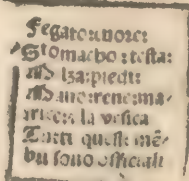 Fegato: cuore:
Stomacho: testa:
Milza: piedi:
Mano: rene: ma/
trice: la vesica
Tutti questi mẽ/
bri sono officiali